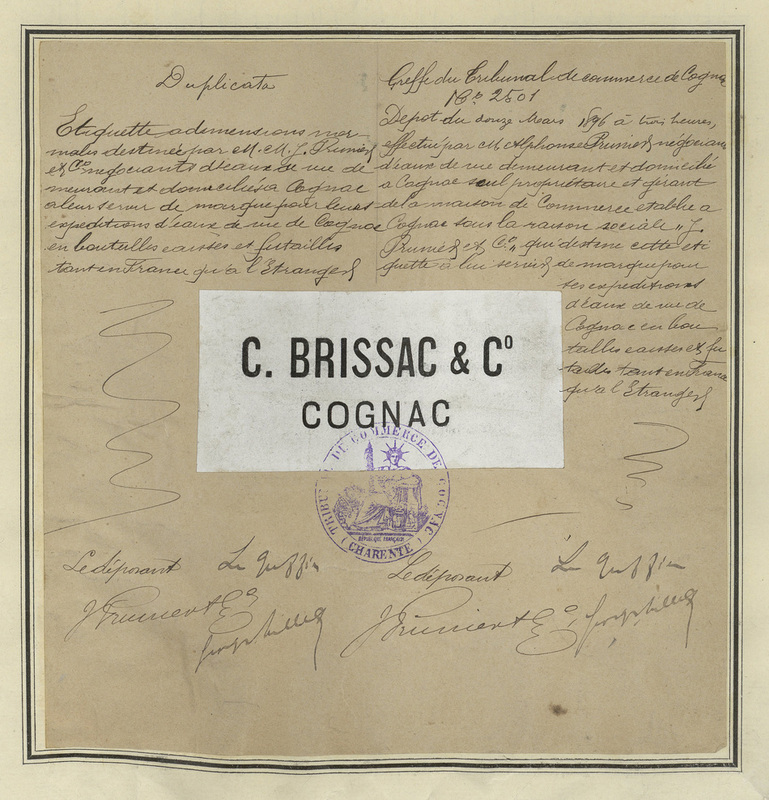 Duplicata
Etiquette a dimensions nor
males destinée par M. M. J. Prunier
et Co négociants d'eaux de vie de
meurant et domiciliés a Cognac
a leur servir de marque pour leurs
expeditions d'eaux de vie de Cognac
en bouteilles caisses et futailles
tant en France qu'a l'Etranger
Greffe du Tribunal de commerce de Cognac
No 2501
Dépot du douze Mars 1896 à trois heures,
effectué par M. Alphonse Prunier négociant
d'eaux de vie demeurant et domicilié
a Cognac seul propriétaire et gérant
de la maison de Commerce etablie a
Cognac sous la raison sociale "J.
Prunier et Co" qui destine cette eti
quette a lui servir de marque pour
ses expeditions
d'eaux de vie de
Cognac en bou
teilles caisses et fu
tailles tant en France
qu'a l'Etranger
C. BRISSAC & Co
COGNAC
TRIBUNAL DE COMMERCE DE COGNAC
REPUBLIQUE FRANÇAISE
(CHARENTE)
Le déposant Le Greffier
J Prunier & Co
Le déposant Le Greffier
J Prunier & Co